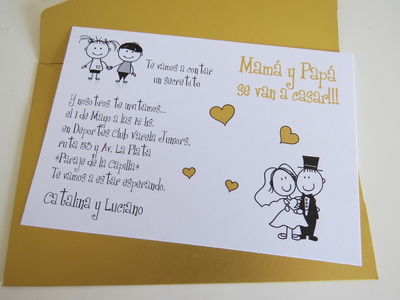 Te vamos a contar
un secretito
Mamá y Papá
se van a casar!!!
Y nosotros te invitamos...
el 1 de Mayo a las 12 hs.
en Deportes Club Varela Juniors,
ruta 53 y Av. La Plata
*Paraje de la Capilla*
Te vamos a estar esperando.
Catalina y Luciano